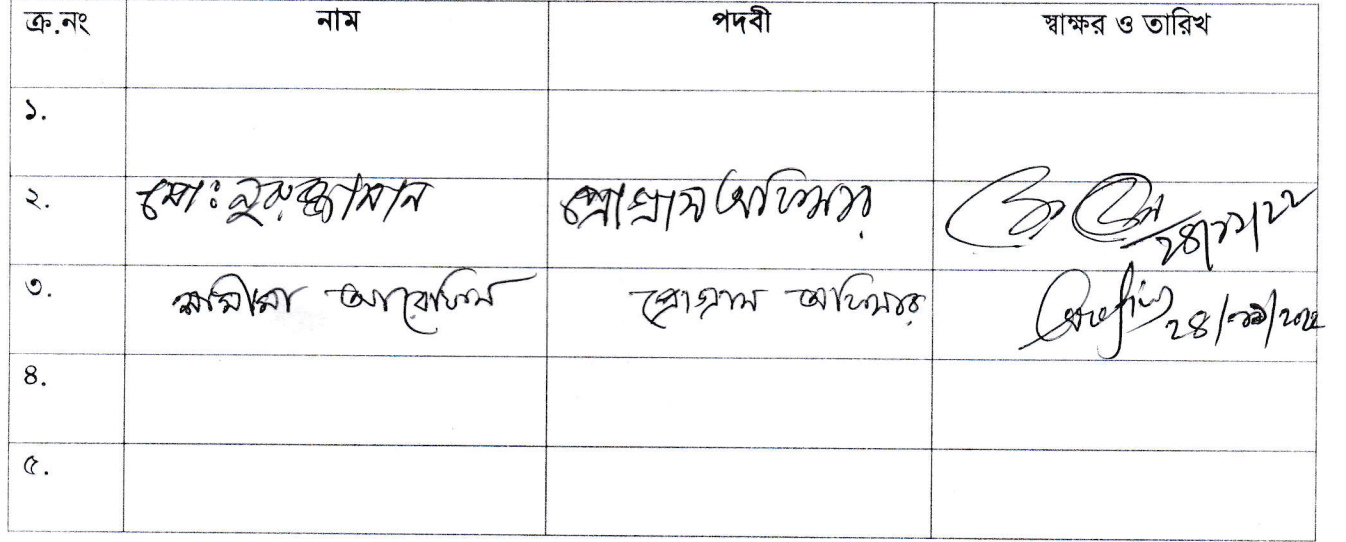 ক্র.নং নাম পদবী স্বাক্ষর ও তারিখ
১.
২. মো: নুরুজ্জামান প্রোগ্রাম অফিসার ২৪/১১/২২
৩. শামীমা আরেফিন প্রোগ্রাম অফিসার ২৪/১১/২০২২
৪.
৫.